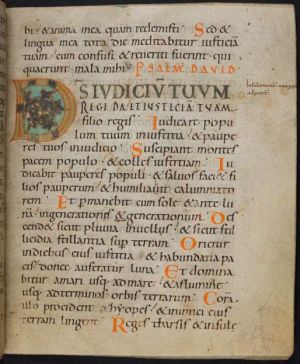 bi· & anima mea quam redemisti· Sed &
lingua mea tota die meditabitur iusticiā
tuam· cum confusi & reveriti fuerint qui
quaerunt mala mihi· PSALM̄ DAVID
DS IUDICIŪ TUUM
REGI DA ET IUSTICIĀ TUAM
filio regis· Iudicare popu
lum tuum in iustitia· & paupe
res tuos in iudicio· Suscipiant montes
pacem populo· & colles iustitiam· Iu
dicabit pauperes populi· & salvos faci& fi
lios pauperum· & humiliabit calumniato
rem· Et permanebit cum sole & ante lu
nā· in generationes & generationum· Des
cend& sicut pluvia in vellus· & sicut stil
licidia stillantia sup terram· Ori&ur
in diebus eius iustitia & habundantia pa
cis· donec auferatur luna· Et domina
bitur a mari usq; ad mare· & a flumine
usq; ad terminos orbis terrarum· Cora
illo procident &hyopes· & inimici eius
terram lingent· Reges tharsis & insule